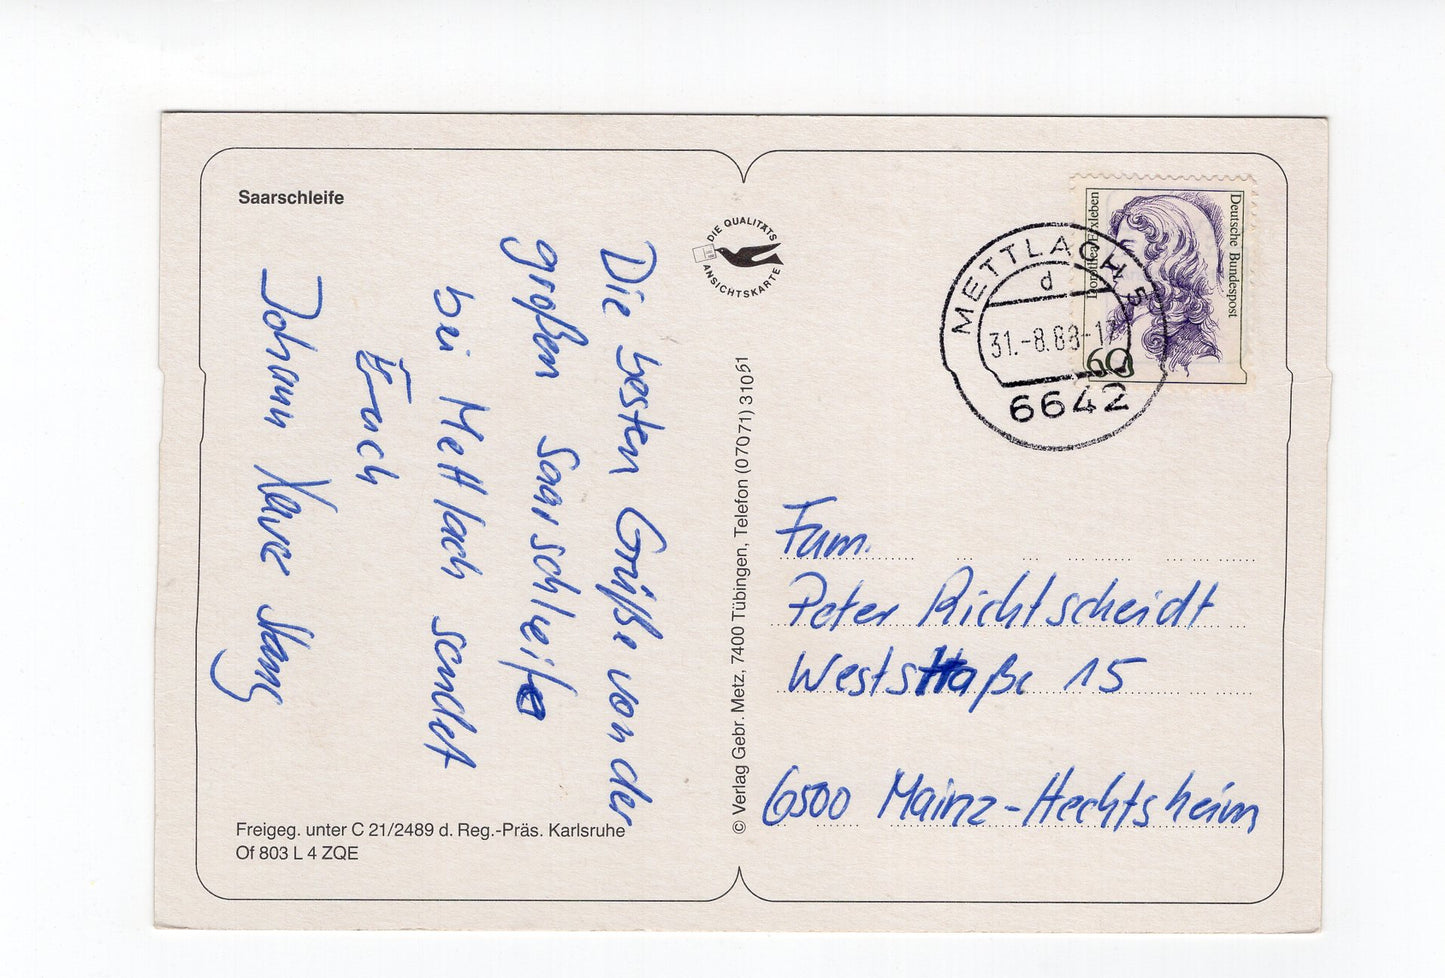 Saarschleife
Die besten Grüße von der
großen Saarschleife
bei Mettlach sendet
Euch
Johann
Freigeg. unter C 21/2489 d. Reg.-Präs. Karlsruhe
Of 803 L 4 ZQE
DIE QUALITÄTS
ANSICHTSKARTE
© Verlag Gebr. Metz, 7400 Tübingen, Telefon (07071) 31051
Dorothea Erxleben
Deutsche Bundespost
60
METTLACH
d
31.-8.88-17
6642
Fam.
Peter Richtscheidt
Weststraße 15
6500 Mainz-Hechtsheim